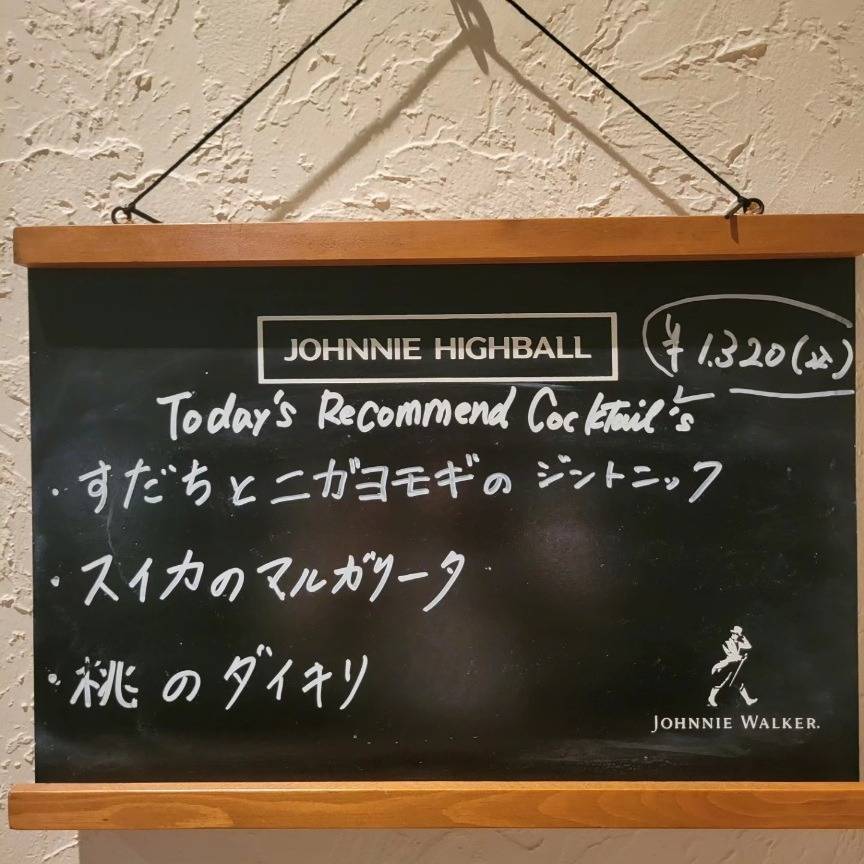 JOHNNIE HIGHBALL
¥1.320(込)
Today's Recommend Cocktail's
・すだちとニガヨモギのジントニック
・スイカのマルガリータ
・桃のダイキリ
JOHNNIE WALKER.